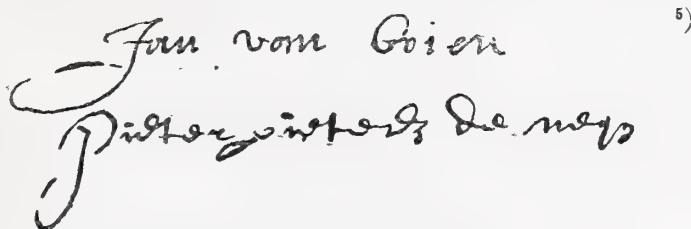 Jan van Goien 5)
Pieter pieters de neyn